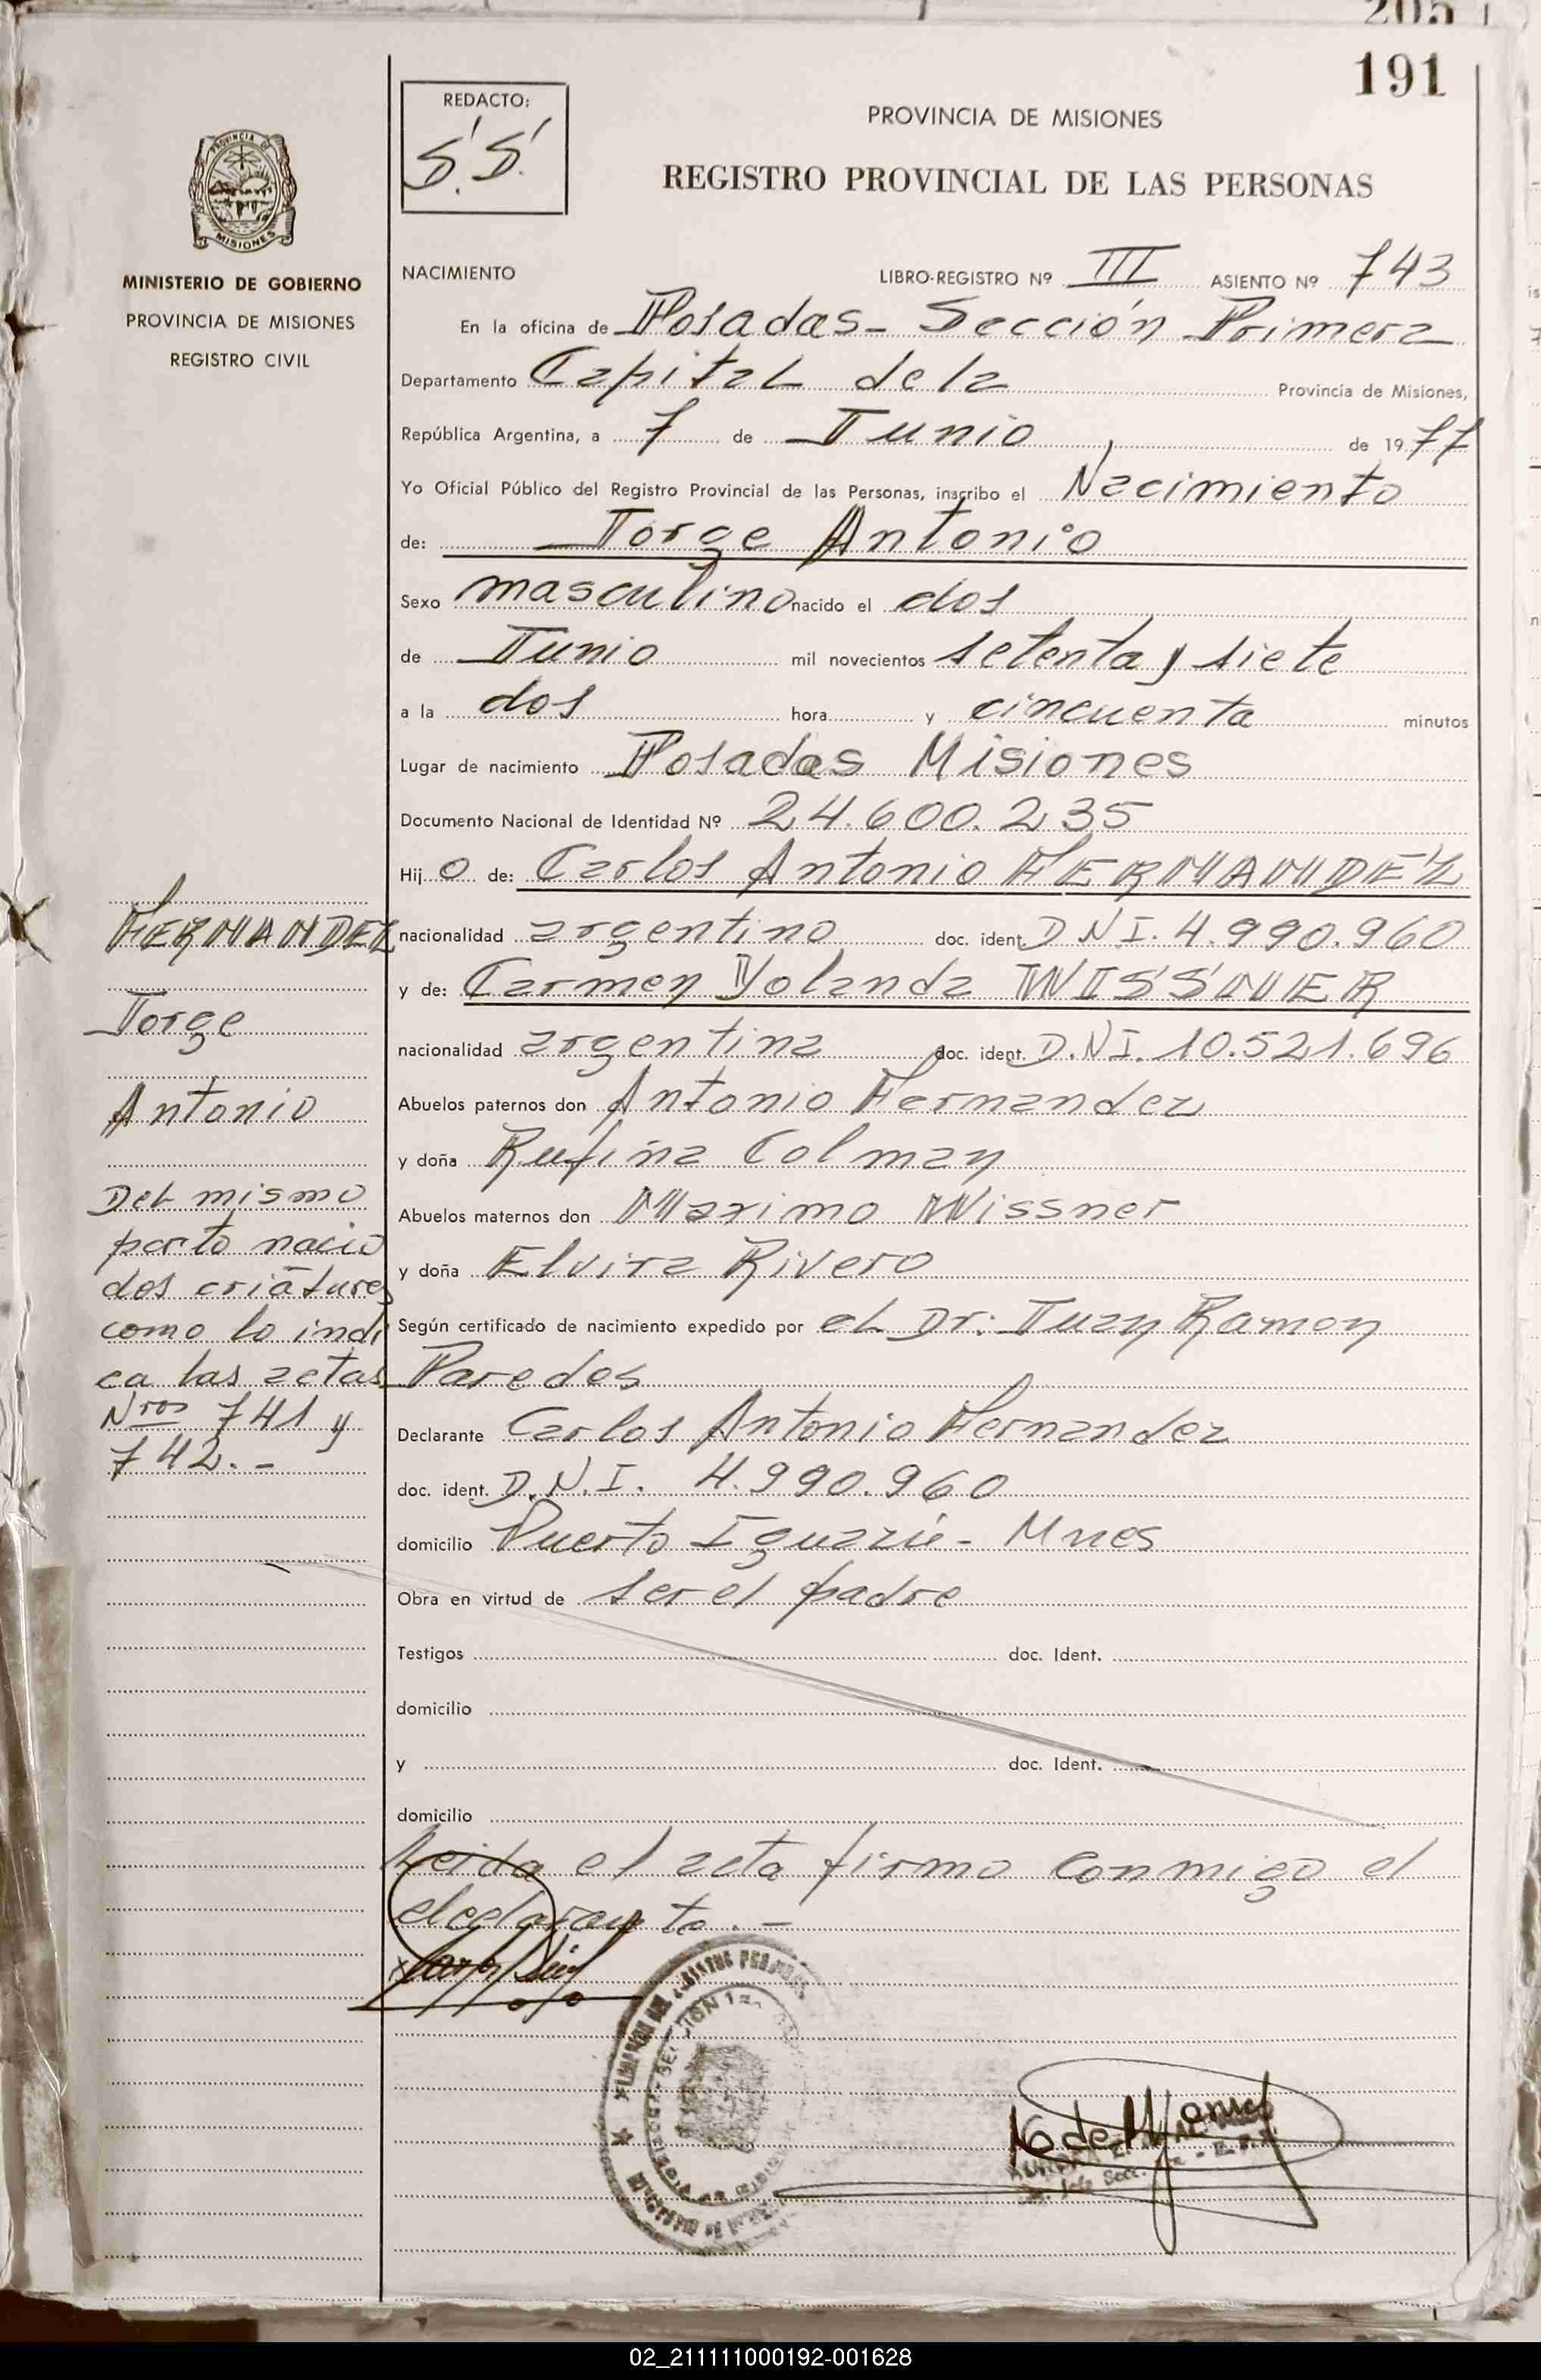 205
191
REDACTO:
S.S.
PROVINCIA DE MISIONES
REGISTRO PROVINCIAL DE LAS PERSONAS
PROVINCIA DE
MISIONES
MINISTERIO DE GOBIERNO
PROVINCIA DE MISIONES
REGISTRO CIVIL
NACIMIENTO LIBRO-REGISTRO Nº III ASIENTO Nº 743
En la oficina de Posadas - Sección Primera
Departamento Capital de la Provincia de Misiones,
República Argentina, a 7 de Junio de 1977
Yo Oficial Público del Registro Provincial de las Personas, inscribo el Nacimiento
de: Jorge Antonio
Sexo masculino nacido el dos
de Junio mil novecientos setenta y siete
a la dos hora y cincuenta minutos
Lugar de nacimiento Posadas Misiones
Documento Nacional de Identidad Nº 24.600.235
Hijo de: Carlos Antonio FERNANDEZ
nacionalidad argentino doc. ident. D N I. 4.990.960
y de: Carmen Yolanda WISSNER
nacionalidad argentina doc. ident. D.N.I. 10.521.696
Abuelos paternos don Antonio Fernandez
y doña Rufina Colman
Abuelos maternos don Maximo Wissner
y doña Elvira Rivero
Según certificado de nacimiento expedido por el Dr: Juan Ramon
Paredes
Declarante Carlos Antonio Fernandez
doc. ident. D.N.I. 4.990.960
domicilio Puerto Iguazú - Mnes
Obra en virtud de ser el padre
Testigos doc. Ident.
domicilio
y doc. Ident.
domicilio
Leida el acta firma conmigo el
declarante. -
FERNANDEZ
Jorge
Antonio
Del mismo
parto nacio
dos criatures
como lo indi
ca las actas
Nros 741 y
742. -
SECCION 1a
02_211111000192-001628